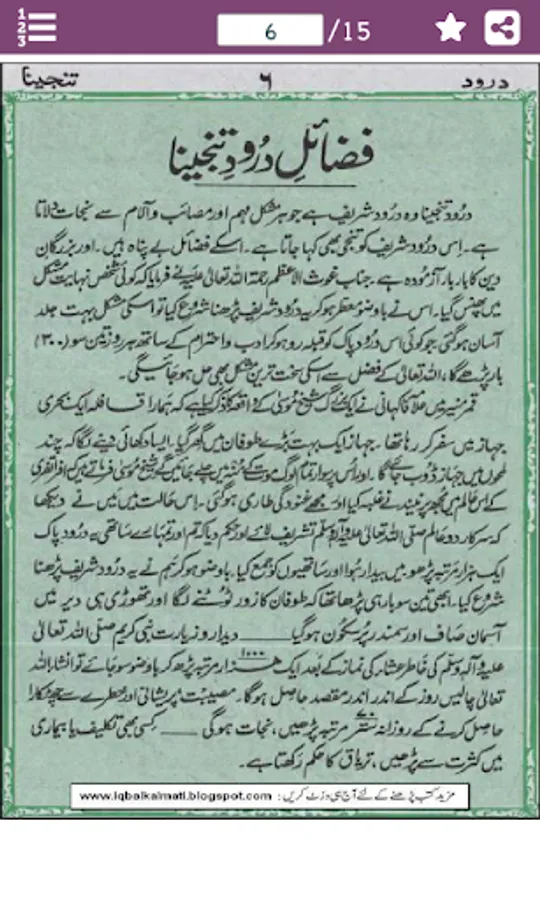 1
2
3
6 /15
درود ٦ تنجینا
فضائلِ درُودِ تنجینا
درُود تنجینا وہ درُود شریف ہے جو ہر مشکل مہم اور مصائب و آلام سے نجات دلاتا
ہے۔ اِس درُود شریف کو تنجی بھی کہا جاتا ہے۔ اسکے فضائل بے پناہ ہیں۔ اور بزرگانِ
دین کا بار بار آزمودہ ہے۔ جناب غوث الاعظم رحمۃ اللہ تعالیٰ علیہ نے فرمایا کہ کوئی شخص نہایت مشکل
میں پھنس گیا۔ اس نے باوضو معطر ہو کر یہ درُود شریف پڑھنا شروع کیا تو اسکی مشکل بہت جلد
آسان ہوگئی جو کوئی اس درُود پاک کو قبلہ رو ہو کر ادب و احترام کے ساتھ ہر روز تین سو (۳۰۰)
بار پڑھے گا، اللہ تعالیٰ کے فضل سے اسکی سخت ترین مشکل بھی حل ہو جائیگی۔
قمر منیر میں فاکہانی نے ایک بزرگ شیخ موسیٰ کے واقعہ کا ذکر کیا ہے کہ ہمارا قافلہ ایک بحری
جہاز میں سفر کر رہا تھا۔ جہاز ایک بہت بڑے طوفان میں گِھر گیا۔ ایسا دکھائی دینے لگا کہ چند
لمحوں میں جہاز ڈوب جائے گا۔ اور اُس پر سوار تمام لوگ موت کے مُنہ میں چلے جائیں گے شیخ موسیٰ فرماتے ہیں افراتفری
کے اس عالم میں مجھ پر نیند نے غلبہ کیا اور مجھے غنودگی طاری ہوگئی۔ اِس حالت میں میں نے دیکھا
کہ سرکارِ دو عالم صلی اللہ تعالیٰ علیہ وآلہ وسلم تشریف لائے اور حکم دیا کہ تم اور تمہارے ساتھی یہ درُود پاک
ایک ہزار مرتبہ پڑھو میں بیدار ہُوا اور ساتھیوں کو جمع کیا۔ باوضو ہو کر ہم نے یہ درُود شریف پڑھنا
شروع کیا۔ ابھی تین سو بار ہی پڑھا تھا کہ طوفان کا زور ٹوٹنے لگا اور تھوڑی ہی دیر میں
آسمان صاف اور سمندر پُر سکون ہو گیا ـــــ دیدار و زیارت نبی کریم صلی اللہ تعالیٰ
علیہ وآلہ وسلم کی خاطر عشاء کی نماز کے بعد ایک ہزار ۱۰۰۰ مرتبہ پڑھ کر باوضو سو جائے تو انشاء اللہ
تعالیٰ چالیس روز کے اندر اندر مقصد حاصل ہوگا۔ مصیبت، پریشانی اور خطرے سے چھٹکارا
حاصل کرنے کے روزانہ ستر ۷۰ مرتبہ پڑھیں، نجات ہوگی ـــــ کسی بھی تکلیف یا بیماری
میں کثرت سے پڑھیں، تریاق کا حکم رکھتا ہے۔
مزید کتب پڑھنے کے لئے آج ہی وزٹ کریں : www.iqbalkalmati.blogspot.com